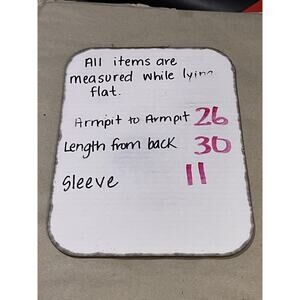 All items are
measured while lying
flat.
Armpit to Armpit 26
Length from back 30
Sleeve 11